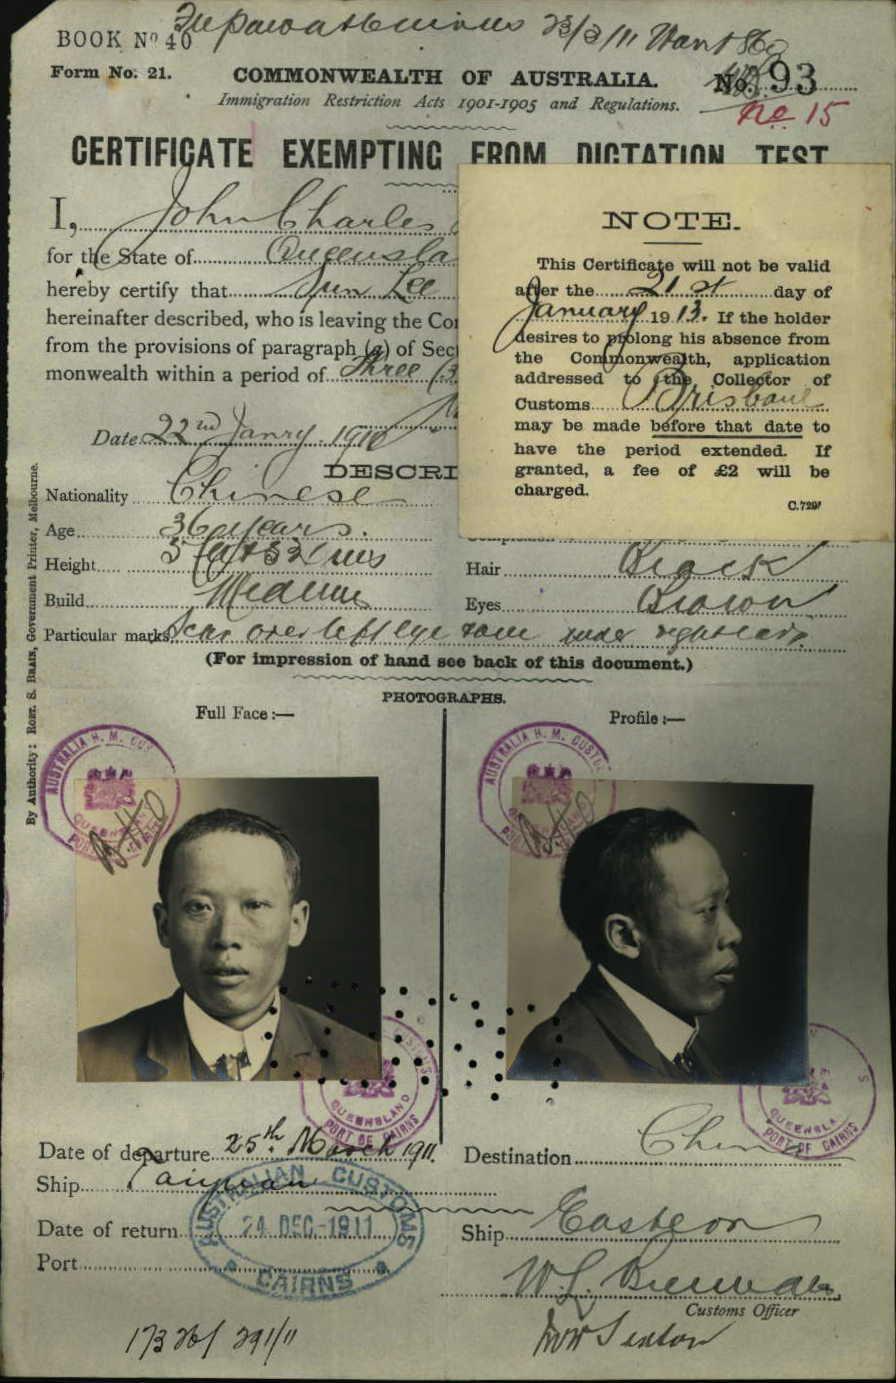 BOOK No 40
23/3/11
Form No. 21.
COMMONWEALTH OF AUSTRALIA.
No. 93
Immigration Restriction Acts 1901-1905 and Regulations.
No 15
CERTIFICATE EXEMPTING FROM DICTATION TEST
I, John Charles
for the State of Queensla
hereby certify that Sun Lee
hereinafter described, who is leaving the Co
from the provisions of paragraph (a) of Sec
monwealth within a period of Three (3
Date 22nd Janry. 1910
NOTE.
This Certificate will not be valid
after the 21st day of
January 1913. If the holder
desires to prolong his absence from
the Commonwealth, application
addressed to the Collector of
Customs Brisbane
may be made before that date to
have the period extended. If
granted, a fee of £2 will be
charged.
C.729
DESCRI
Nationality Chinese
Age 36 years.
Height 5
Build Medium
Hair Black
Eyes Brown
Particular marks Scar over left eye same under right ear.
(For impression of hand see back of this document.)
PHOTOGRAPHS.
Full Face :—
Profile :—
By Authority: ROBT. S. BRAIN, Government Printer, Melbourne.
AUSTRALIA H. M. CUS
QUEENSLAND
PORT OF CAIRNS
AUSTRALIA H. M. CUSTO
QUEENSLAND
PORT OF CAIRNS
Date of departure 25th March 1911.
Destination Chin
Ship Taiyuan
Date of return
AUSTRALIAN CUSTOMS
24 DEC. 1911
CAIRNS
Ship Eastern
Port
Customs Officer